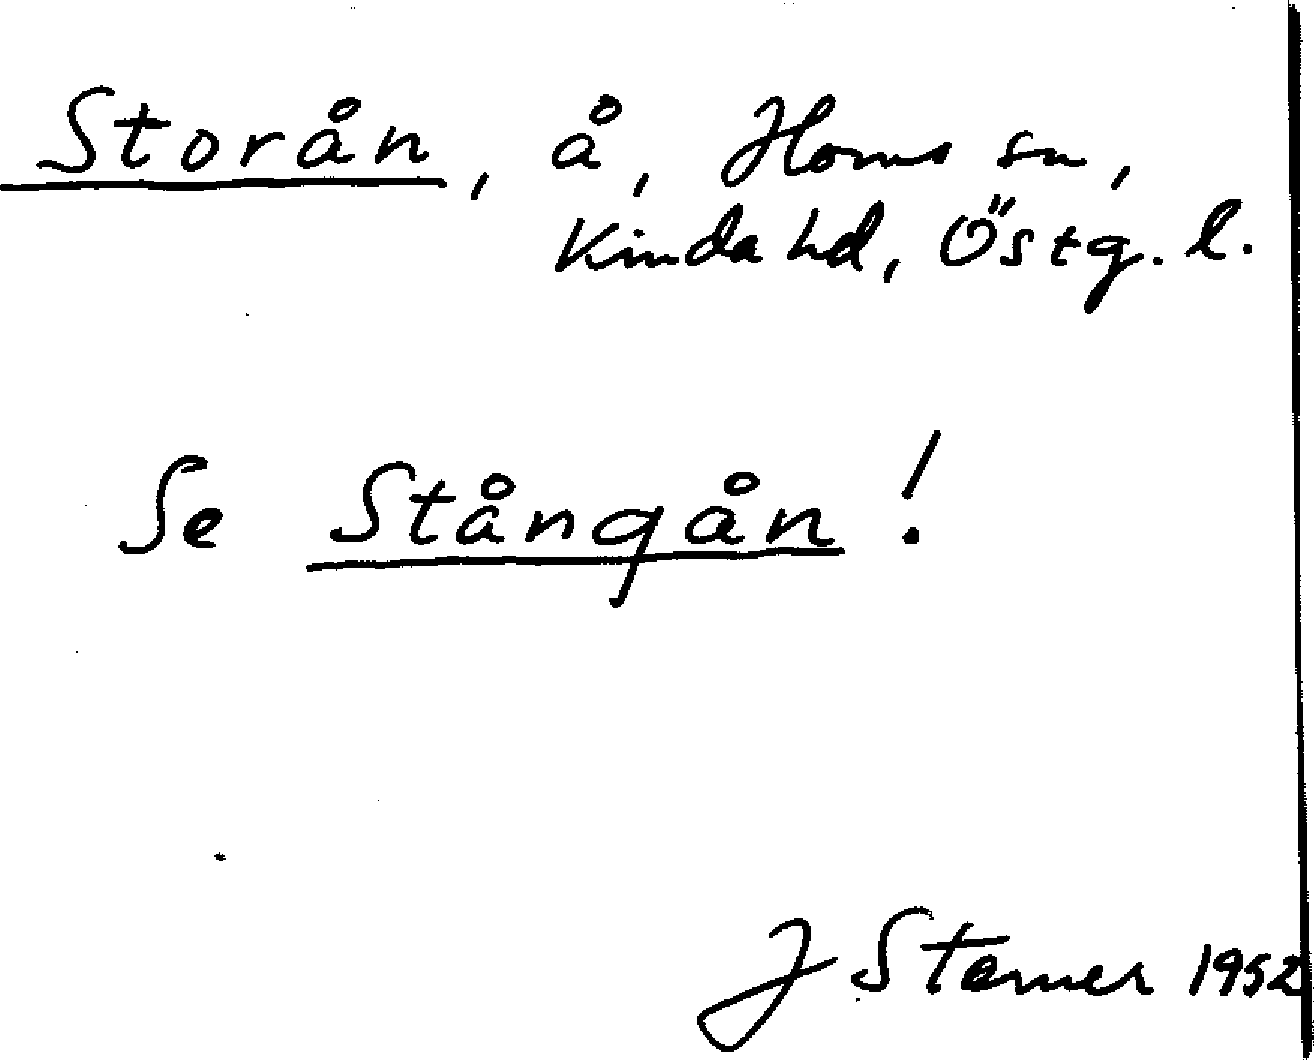 Storån, å, Horns sn,
Kinda hd, Östg. l.
Se Stångån!
J Starner 1952